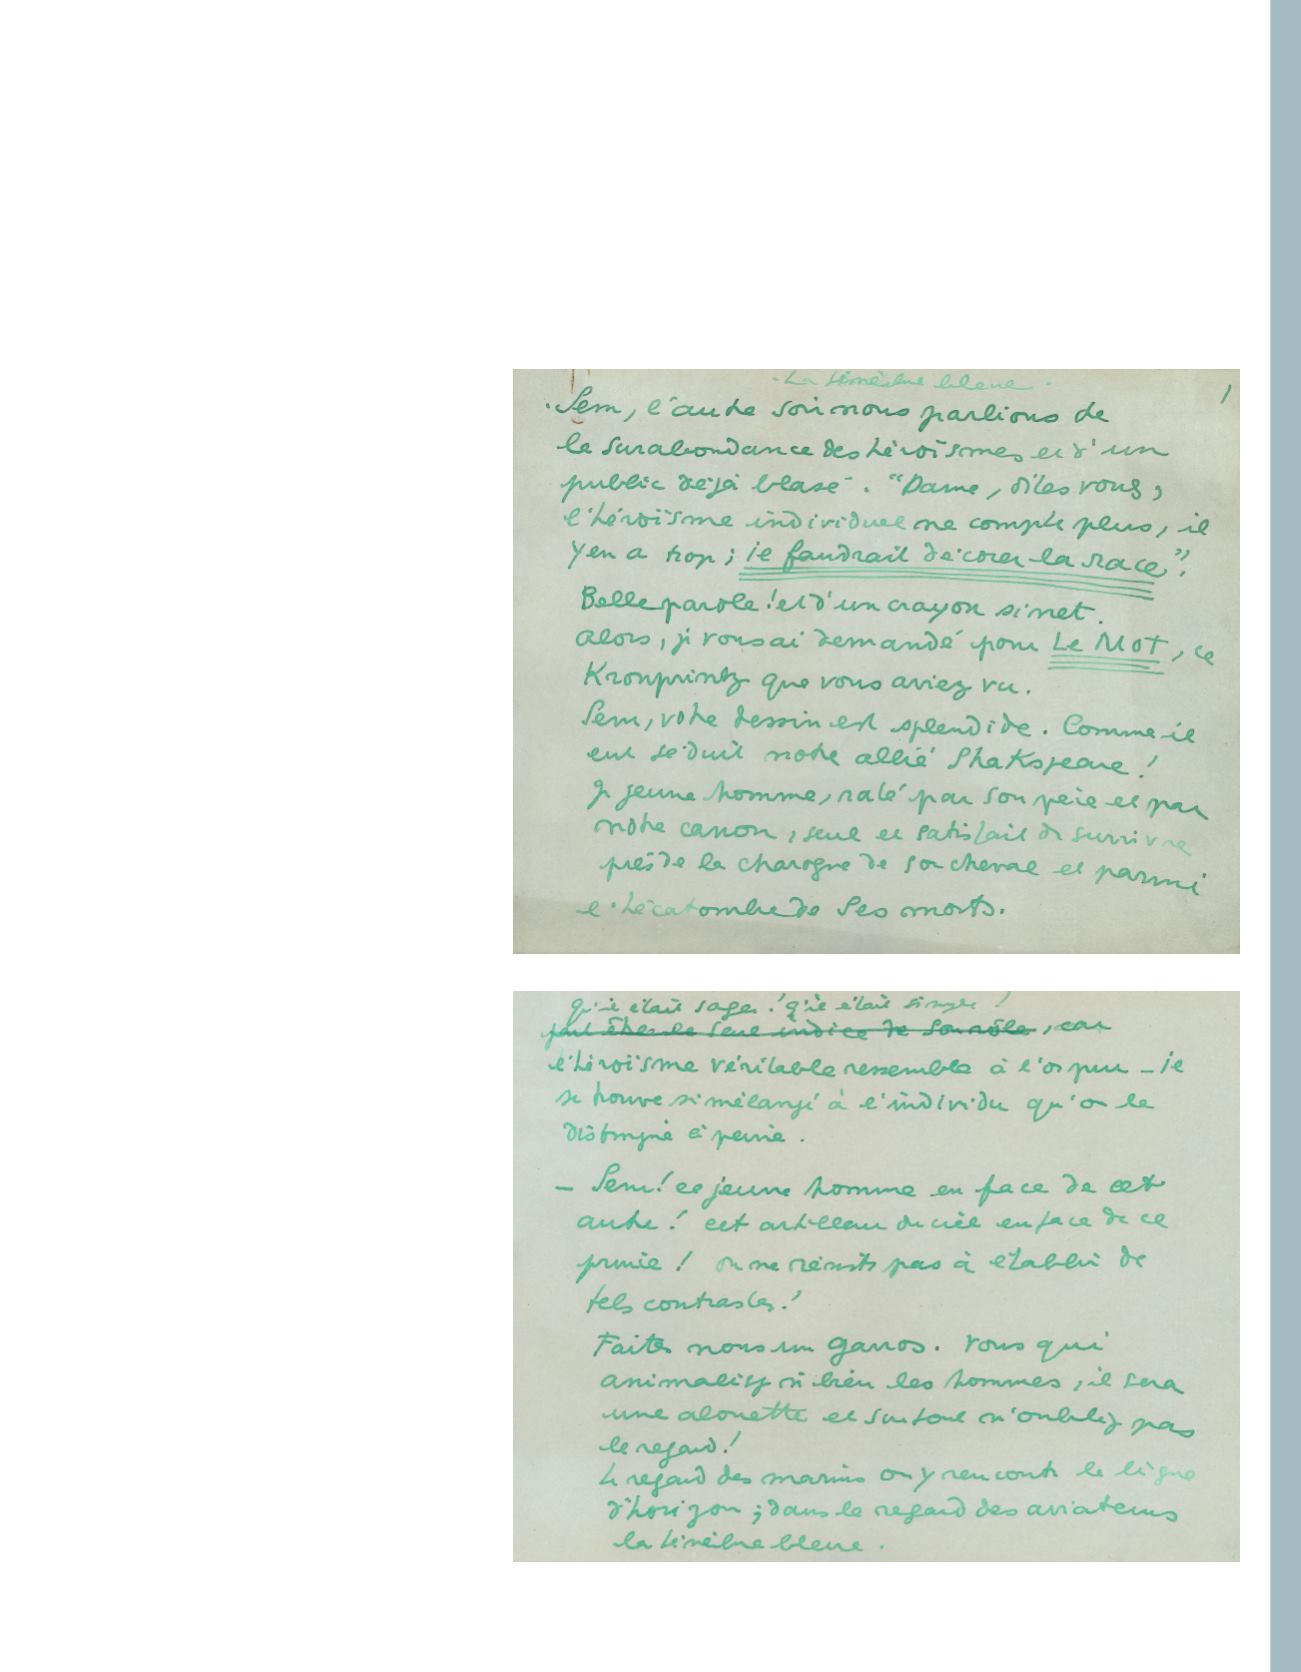 . La ténèbre bleue .
1
. Sem, l'autre soir nous parlions de
la surabondance des héroïsmes et d'un
public déjà blasé . "Dame, dites vous,
l'héroïsme individuel ne compte plus, il
y en a trop ; il faudrait décorer la race".
Belle parole ! et d'un crayon si net.
Alors, je vous ai demandé pour Le MOT, ce
Kronprintz que vous aviez vu.
Sem, votre dessin est splendide. Comme il
eut séduit notre allié Shakspeare !
Ce jeune homme, raté par son père et par
notre canon, seul et satisfait de survivre
près de la charogne de son cheval et parmi
l'hécatombe de ses morts.
qu'il était sage ! qu'il était simple !
peut être le seul indice de son rôle, car
l'héroïsme véritable ressemble à l'or pur _ il
se trouve si mélangé à l'individu qu'on le
distingue à peine .
_ Sem ! ce jeune homme en face de cet
autre ! cet artilleur du ciel en face de ce
prince ! on ne réussit pas à établir de
tels contrastes !
Faites nous un Garros. Vous qui
animalisez si bien les hommes, il sera
une alouette et surtout n'oubliez pas
le regard !
Le regard des marins on y rencontre la ligne
d'horizon ; dans le regard des aviateurs
la ténèbre bleue .